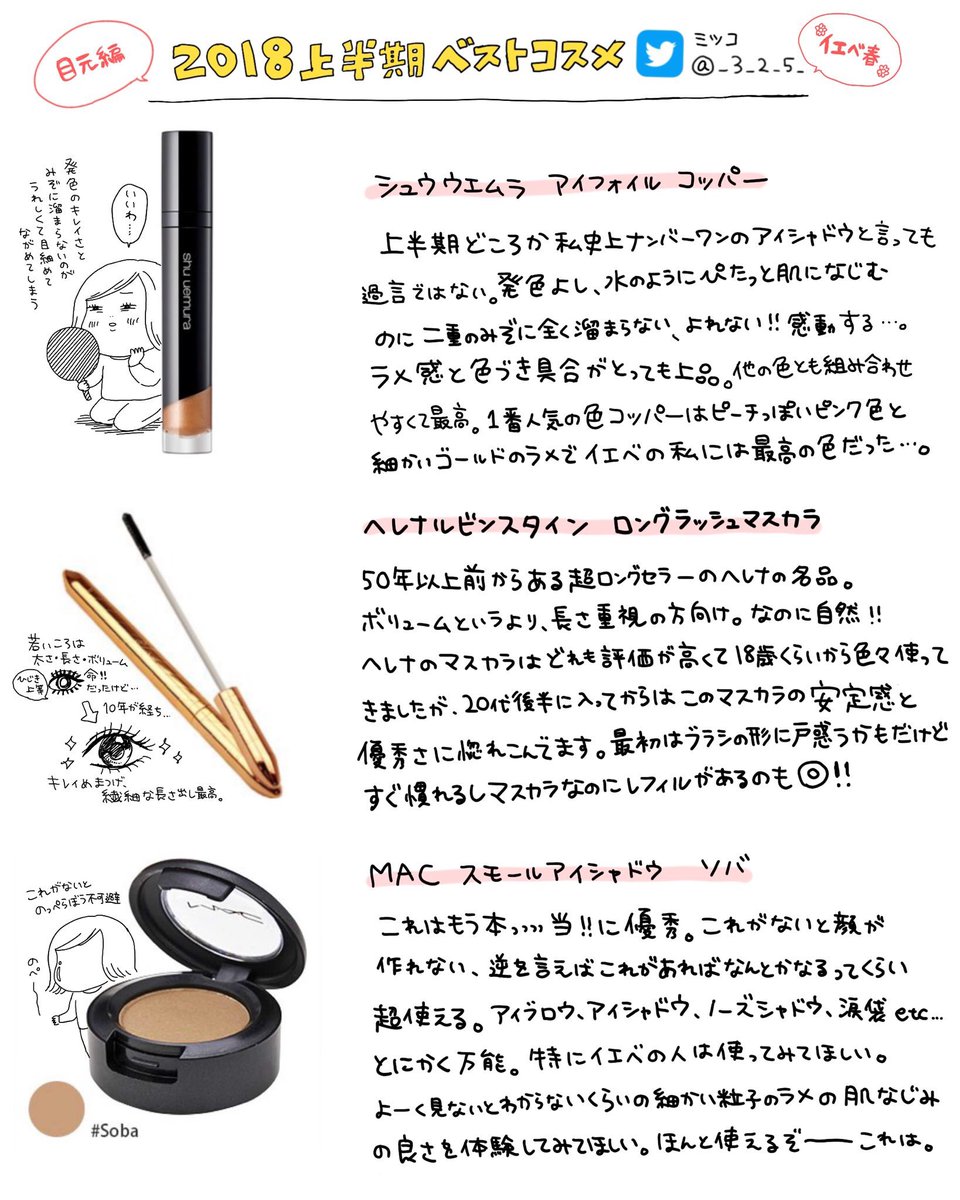 目元編
2018上半期ベストコスメ
ミツコ
@_3_2_5_
イエベ春
発色のキレイさと
みぞに溜まらないのが
うれしくて目細めて
ながめてしまう
いいわ…
shu uemura
シュウ ウエムラ アイフォイル コッパー
上半期どころか私史上ナンバーワンのアイシャドウと言っても
過言ではない。発色よし、水のようにぴたっと肌になじむ
のに二重のみぞに全く溜まらない、よれない!!感動する…。
ラメ感と色づき具合がとっても上品。他の色とも組み合わせ
やすくて最高。1番人気の色コッパーはピーチっぽいピンク色と
細かいゴールドのラメでイエベの私には最高の色だった…。
ヘレナルビンスタイン ロングラッシュマスカラ
50年以上前からある超ロングセラーのヘレナの名品。
ボリュームというより、長さ重視の方向け。なのに自然!!
ヘレナのマスカラはどれも評価が高くて18歳くらいから色々使って
きましたが、20代後半に入ってからはこのマスカラの安定感と
優秀さに惚れこんでます。最初はブラシの形に戸惑うかもだけど
すぐ慣れるしマスカラなのにレフィルがあるのも◎!!
若いころは
太さ・長さ・ボリューム
命!!
だったけど…
ひじき
上等
10年が経ち…
キレイめまつげ、
繊細な長さ出し最高。
MAC スモールアイシャドウ ソバ
これはもう本っっっ当!!に優秀。これがないと顔が
作れない、逆を言えばこれがあればなんとかなるってくらい
超使える。アイブロウ、アイシャドウ、ノーズシャドウ、涙袋etc…
とにかく万能。特にイエベの人は使ってみてほしい。
よーく見ないとわからないくらいの細かい粒子のラメの肌なじみ
の良さを体験してみてほしい。ほんと使えるぞ――これは。
これがないと
のっぺらぼう不可避
のぺ〜
MAC
#Soba